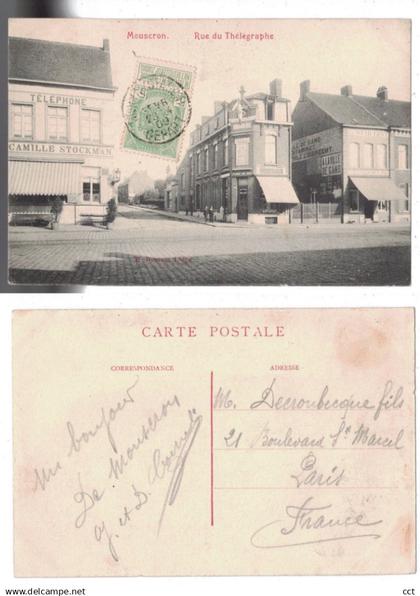 Mouscron. Rue du Thélégraphe
TÉLÉPHONE
CAMILLE STOCKMAN
A LA VILLE
DE GAND
CARTE POSTALE
CORRESPONDANCE
ADRESSE
Un bonjour
De Mouscron
et D.
M. Decroubecque fils
21 Boulevard St Marcel
Paris
France
cct